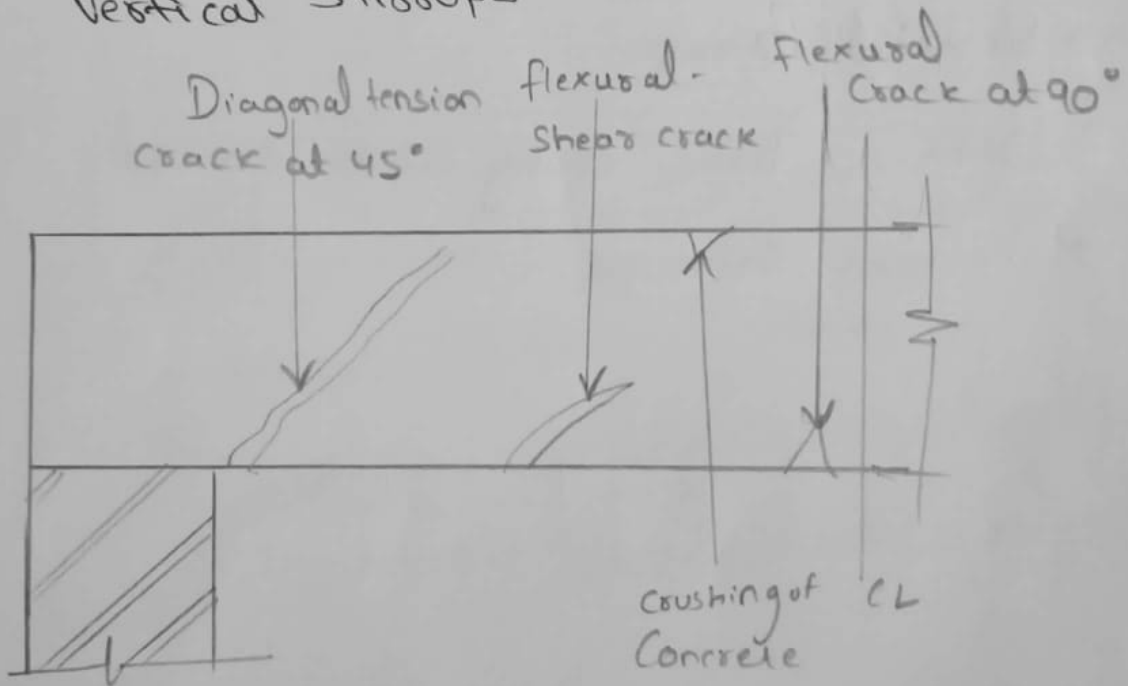 Vertical
Diagonal tension
crack at 45°
flexural-
Shear crack
Flexural
Crack at 90°
Crushing of
Concrete
CL